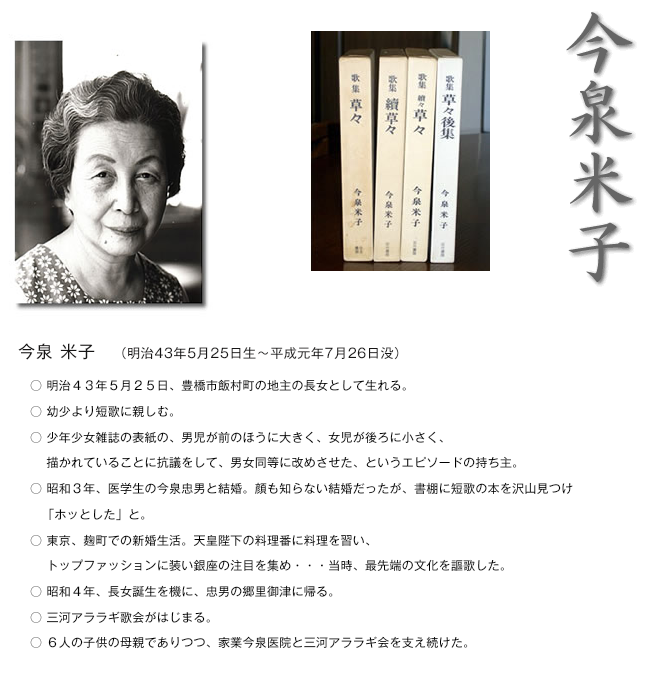 今泉米子
歌集 草々 今泉米子
歌集 續草々 今泉米子
歌集 續々草々 今泉米子
歌集 草々後集 今泉米子
今泉 米子 （明治43年5月25日生～平成元年7月26日没）
○ 明治４３年５月２５日、豊橋市飯村町の地主の長女として生れる。
○ 幼少より短歌に親しむ。
○ 少年少女雑誌の表紙の、男児が前のほうに大きく、女児が後ろに小さく、
描かれていることに抗議をして、男女同等に改めさせた、というエピソードの持ち主。
○ 昭和３年、医学生の今泉忠男と結婚。顔も知らない結婚だったが、書棚に短歌の本を沢山見つけ
「ホッとした」と。
○ 東京、麹町での新婚生活。天皇陛下の料理番に料理を習い、
トップファッションに装い銀座の注目を集め・・・当時、最先端の文化を謳歌した。
○ 昭和４年、長女誕生を機に、忠男の郷里御津に帰る。
○ 三河アララギ歌会がはじまる。
○ ６人の子供の母親でありつつ、家業今泉医院と三河アララギ会を支え続けた。